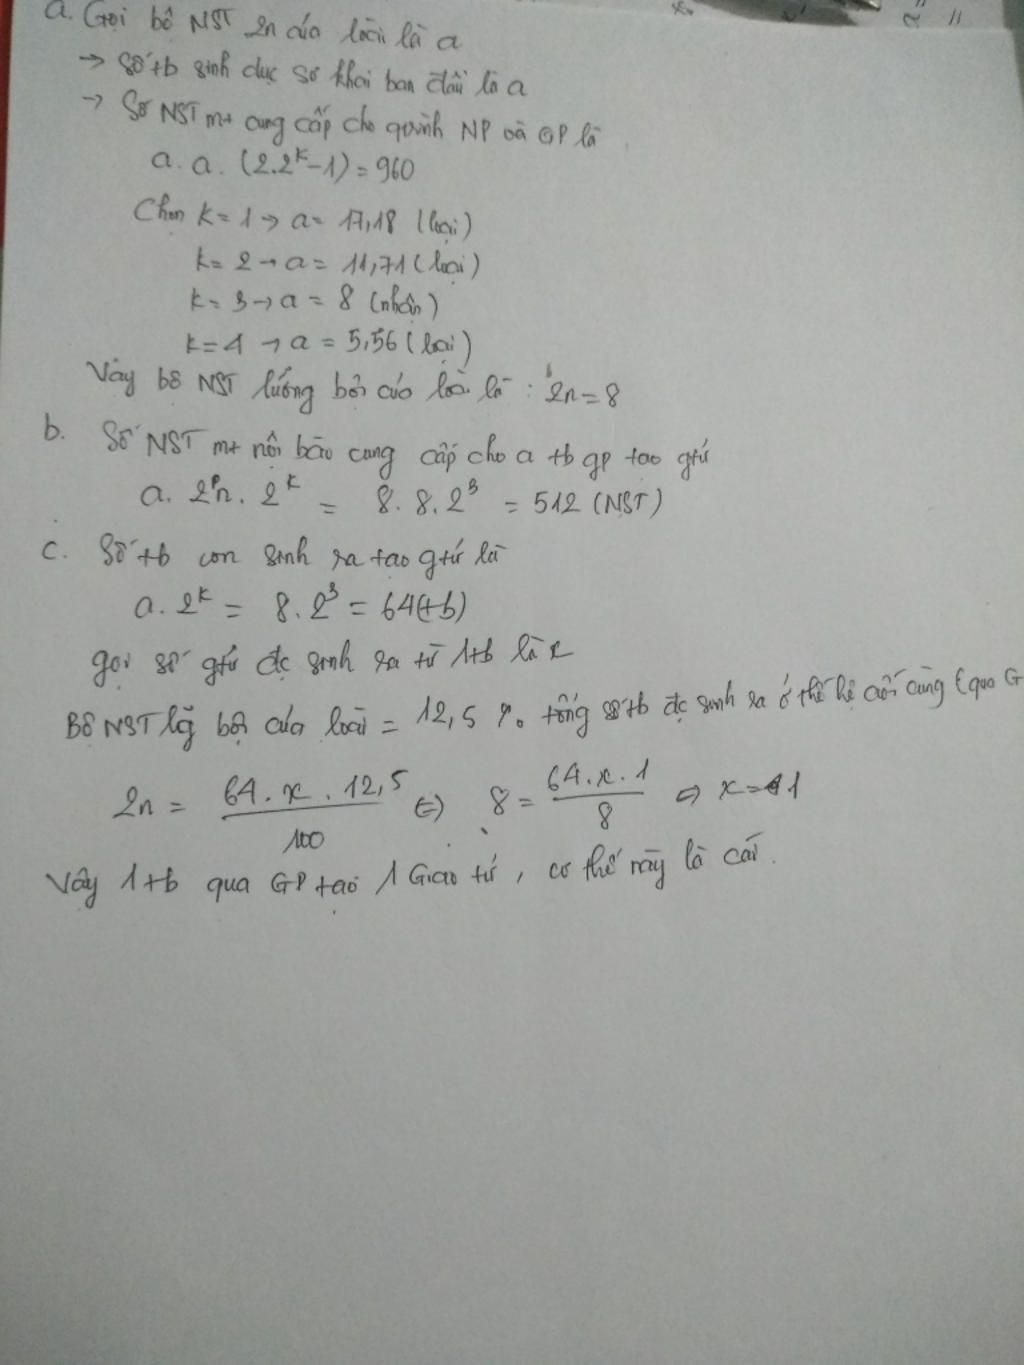 a. Gọi bộ NST 2n của loài là a
→ Số tb sinh dục sơ khai ban đầu là a
→ Số NST mt cung cấp cho quá trình NP và GP là
a. a. (2.2^k - 1) = 960
Chọn k = 1 → a = 17,18 (loại)
k = 2 → a = 11,71 (loại)
k = 3 → a = 8 (nhận)
k = 4 → a = 5,56 (loại)
Vậy bộ NST lưỡng bội của loài là : 2n = 8
b. Số NST mt nội bào cung cấp cho a tb gp tạo gtử
a. 2n. 2^k = 8. 8. 2^3 = 512 (NST)
c. Số tb con sinh ra tạo gtử là
a. 2^k = 8. 2^3 = 64 (tb)
gọi số gtử đc sinh ra từ 1tb là x
Bộ NST lg bội của loài = 12,5 % tổng số tb đc sinh ra ở thế hệ cuối cùng (qua G
2n = 64. x . 12,5 / 100 ⇔ 8 = 64. x . 1 / 8 ⇔ x = 1
Vậy 1tb qua GP tạo 1 Giao tử , cơ thể này là cái .